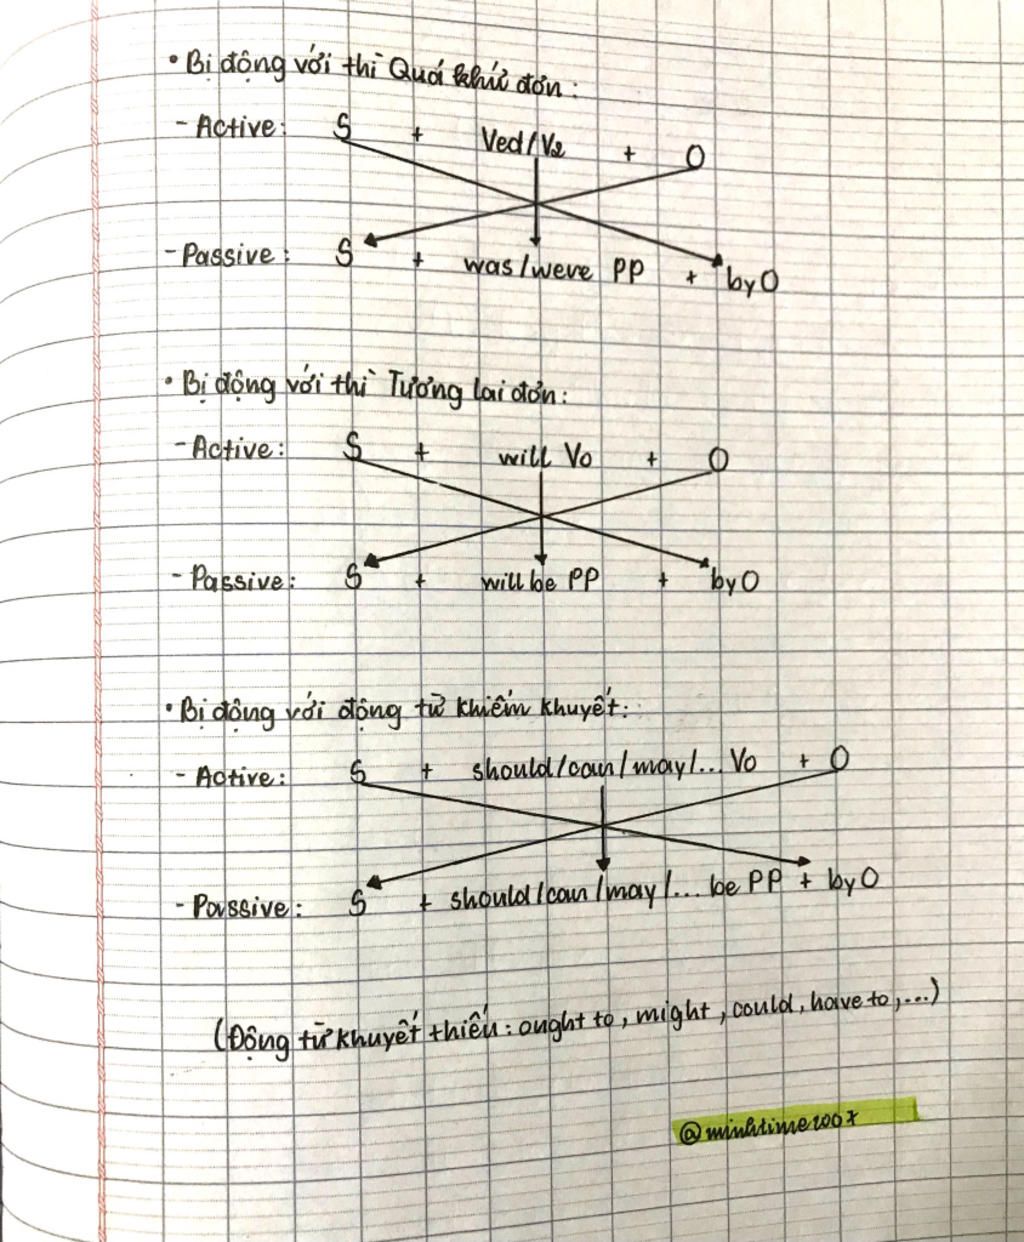 • Bị động với thì Quá khứ đơn:
- Active: S + Ved/V2 + O
- Passive: S + was/were PP + by O
• Bị động với thì Tương lai đơn:
- Active: S + will Vo + O
- Passive: S + will be PP + by O
• Bị động với động từ khiếm khuyết:
- Active: S + should/can/may/... Vo + O
- Passive: S + should/can/may/... be PP + by O
(Động từ khuyết thiếu: ought to, might, could, have to,...)
@minhtime2007